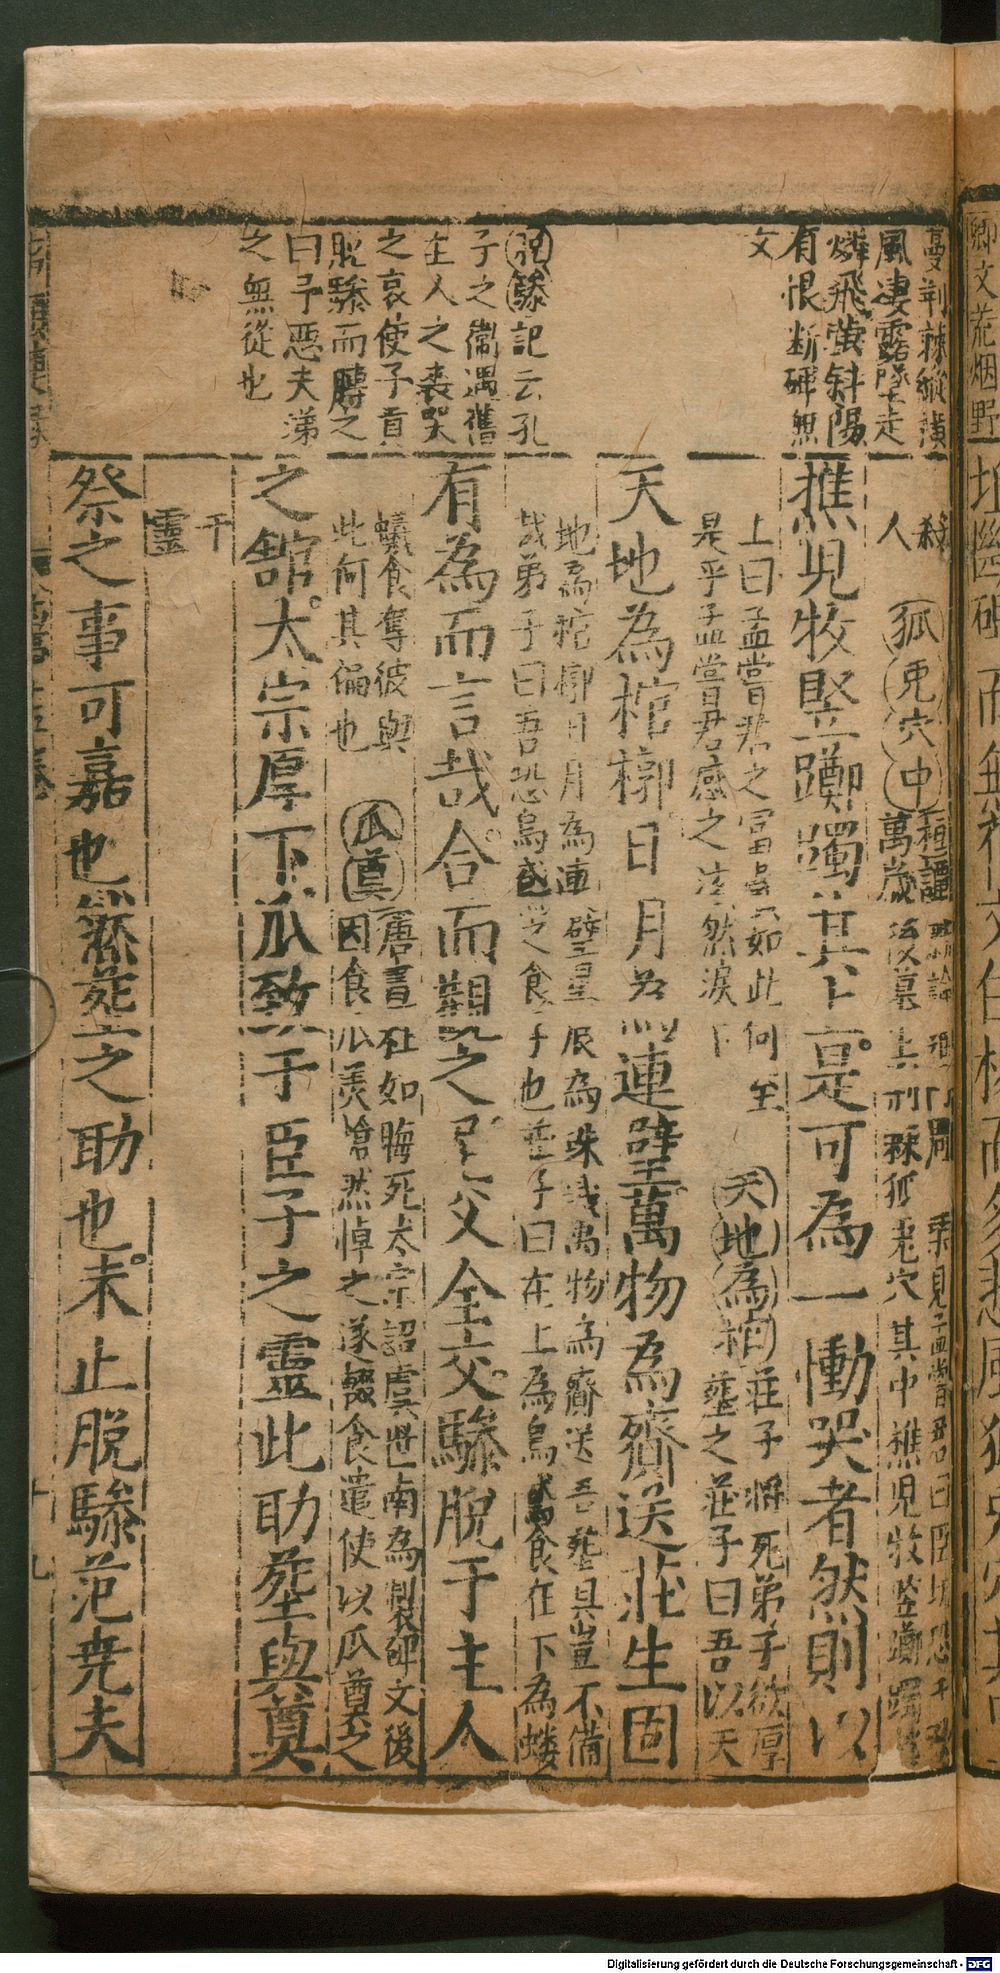 蔓荊棘縱橫
風凄露墜走
燐飛螢斜陽
有恨斷碑無
文
脫驂記云孔
子之衞遇舊
主人之喪哭
之哀使子貢
脫驂而賻之
曰予惡夫涕
之無從也
人
狐兔穴中
萬歲後墓上荊棘狐兔穴其中樵兒牧竪躑躅
樵兒牧竪躑躅其下哀是可為一慟哭者然則以
上曰孟嘗君之富貴一如此何至
是乎孟嘗君感之泫然淚下
天地為棺
莊子將死弟子欲厚
塟之莊子曰吾以天
天地為棺槨日月為連璧萬物為齎送莊生固
地為棺槨日月為連璧星辰為珠璣萬物為齎送吾塟具豈不備
哉弟子曰吾恐烏鳶之食子也莊子曰在上為烏鳶食在下為螻
有為而言哉合而觀之父全交驂脫于主人
蟻食奪彼與
此何其偏也
瓜奠
唐書杜如晦死太宗詔虞世南為製碑文後
因食瓜美愴然悼之遂輟食遣使以瓜奠之
之舘太宗厚下瓜致于臣子之靈此助塟與奠
于
靈
祭之事可嘉也塟之助也未止脫驂范尭夫
十九
鄉文荒烟野
Digitalisierung gefördert durch die Deutsche Forschungsgemeinschaft - DFG